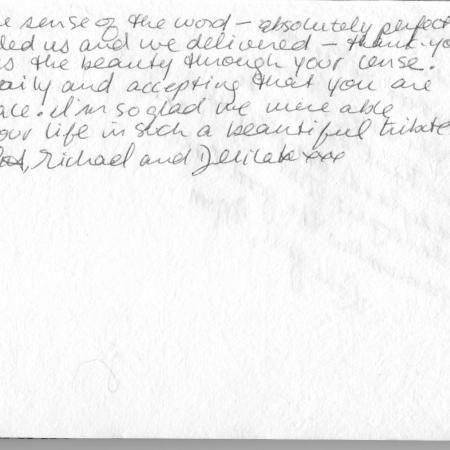 e sense of the word - absolutely perfect
ded us and we delivered - thank yo
s the beauty through your lense.
aily and accepting that you are
ace. I'm so glad we were able
our life in such a beautiful tribute
Michael and Delilah xxx